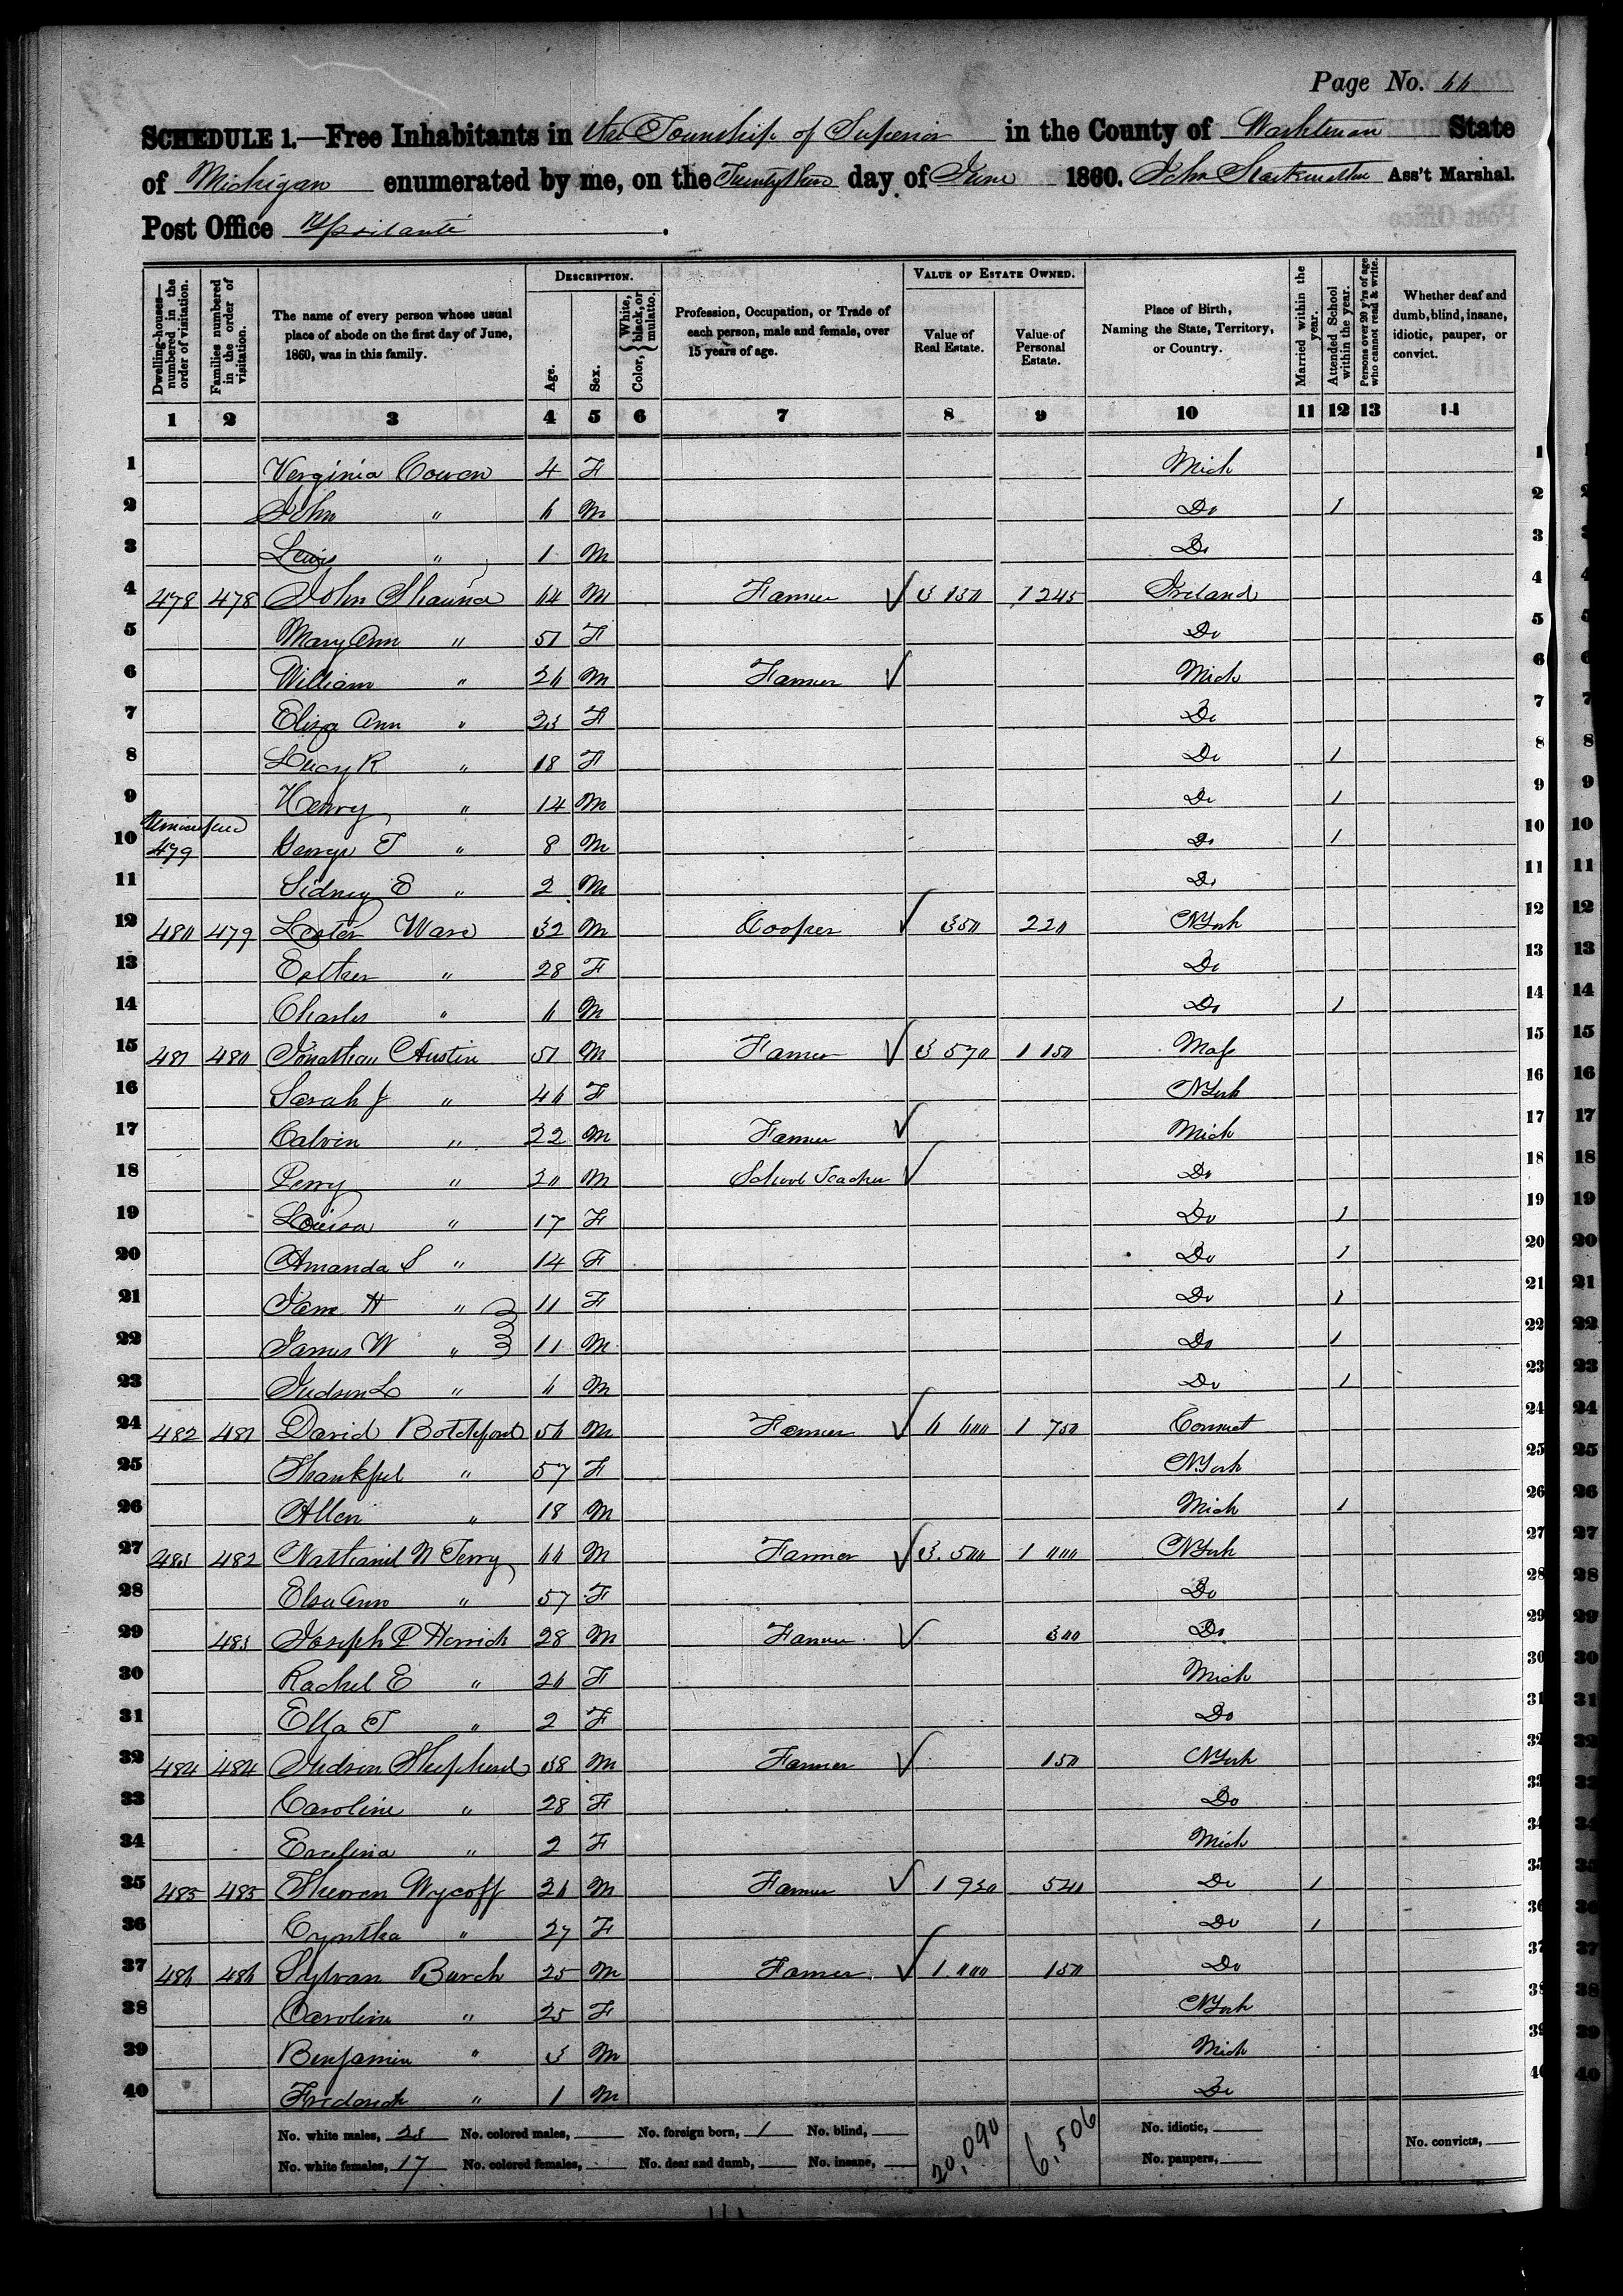 Page No. 66
SCHEDULE 1.—Free Inhabitants in the Township of Superior in the County of Washtenaw State
of Michigan enumerated by me, on the Twenty Second day of June 1860. John Starkweather Ass't Marshal.
Post Office Ypsilanti.
Dwelling-houses—numbered in the order of visitation.
Families numbered in the order of visitation.
The name of every person whose usual place of abode on the first day of June, 1860, was in this family.
DESCRIPTION.
Age.
Sex.
Color, { White, black, or mulatto.
Profession, Occupation, or Trade of each person, male and female, over 15 years of age.
VALUE OF ESTATE OWNED.
Value of Real Estate.
Value of Personal Estate.
Place of Birth, Naming the State, Territory, or Country.
Married within the year.
Attended School within the year.
Persons over 20 y'rs of age who cannot read & write.
Whether deaf and dumb, blind, insane, idiotic, pauper, or convict.
1 2 3 4 5 6 7 8 9 10 11 12 13 14
1 Verginia Cowen 4 F Mich 1
2 John " 6 M Do 1 2
3 Lewis " 1 M Do 3
4 478 478 John Shanna 64 M Farmer 3 130 1245 Ireland 4
5 Mary Ann " 51 F Do 5
6 William " 26 M Farmer Mich 6
7 Eliza Ann " 23 F Do 7
8 Lucy R " 18 F Do 1 8
9 Henry " 14 M Do 1 9
Unoccupied
10 479 George T " 8 M Do 1 10
11 Sidney E " 2 M Do 11
12 480 479 Lester Ware 32 M Cooper 350 220 N York 12
13 Esther " 28 F Do 13
14 Charles " 6 M Do 1 14
15 481 480 Jonathan Austin 51 M Farmer 3 570 1 150 Mass 15
16 Sarah J " 46 F N York 16
17 Calvin " 22 M Farmer Mich 17
18 Perry " 20 M School Teacher Do 18
19 Louisa " 17 F Do 1 19
20 Amanda S " 14 F Do 1 20
21 Jane H " 11 F Do 1 21
22 James W " 11 M Do 1 22
23 Judson L " 6 M Do 1 23
24 482 481 David Botchford 56 M Farmer 6 600 1 750 Connect 24
25 Thankful " 57 F N York 25
26 Allen " 18 M Mich 1 26
27 483 482 Nathaniel N Terry 66 M Farmer 3.500 1 000 N York 27
28 Elsa Ann " 57 F Do 28
29 483 Joseph P Herrick 28 M Farmer 300 Do 29
30 Rachel E " 26 F Mich 30
31 Ella T " 2 F Do 31
32 484 484 Judson Shepherd 38 M Farmer 150 N York 32
33 Caroline " 28 F Do 33
34 " 2 F Mich 34
35 485 485 Wycoff 26 M Farmer 1 930 540 Do 1 35
36 Cyntha " 27 F Do 1 36
37 486 486 Sylvan Burch 25 M Farmer 1.000 150 Do 37
38 Caroline " 25 F N York 38
39 Benjamin " 3 M Mich 39
40 Frederick " 1 M Do 40
No. white males, 23 No. colored males, No. foreign born, 1 No. blind, 20,090 6,506 No. idiotic,
No. white females, 17 No. colored females, No. deaf and dumb, No. insane, No. paupers, No. convicts,